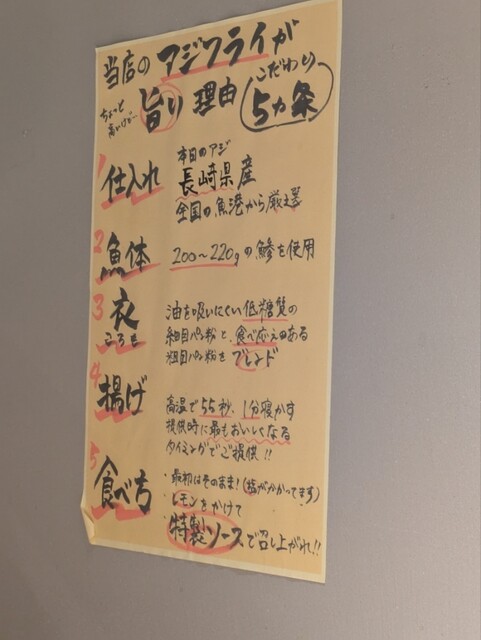 当店のアジフライが
ちょっと
高いけど…
旨い理由
こだわり
5カ条
1 仕入れ
本日のアジ
長崎県産
全国の魚港から厳選
2 魚体
200〜220gの鯵を使用
3 衣
ころも
油を吸いにくい低糖質の
細目パン粉と、食べ応えのある
粗目パン粉をブレンド
4 揚げ
高温で55秒、1分寝かす
提供時に最もおいしくなる
タイミングでご提供!!
5 食べ方
・最初はそのまま!(塩がかかってます)
・レモンをかけて
・特製ソースで召し上がれ!!